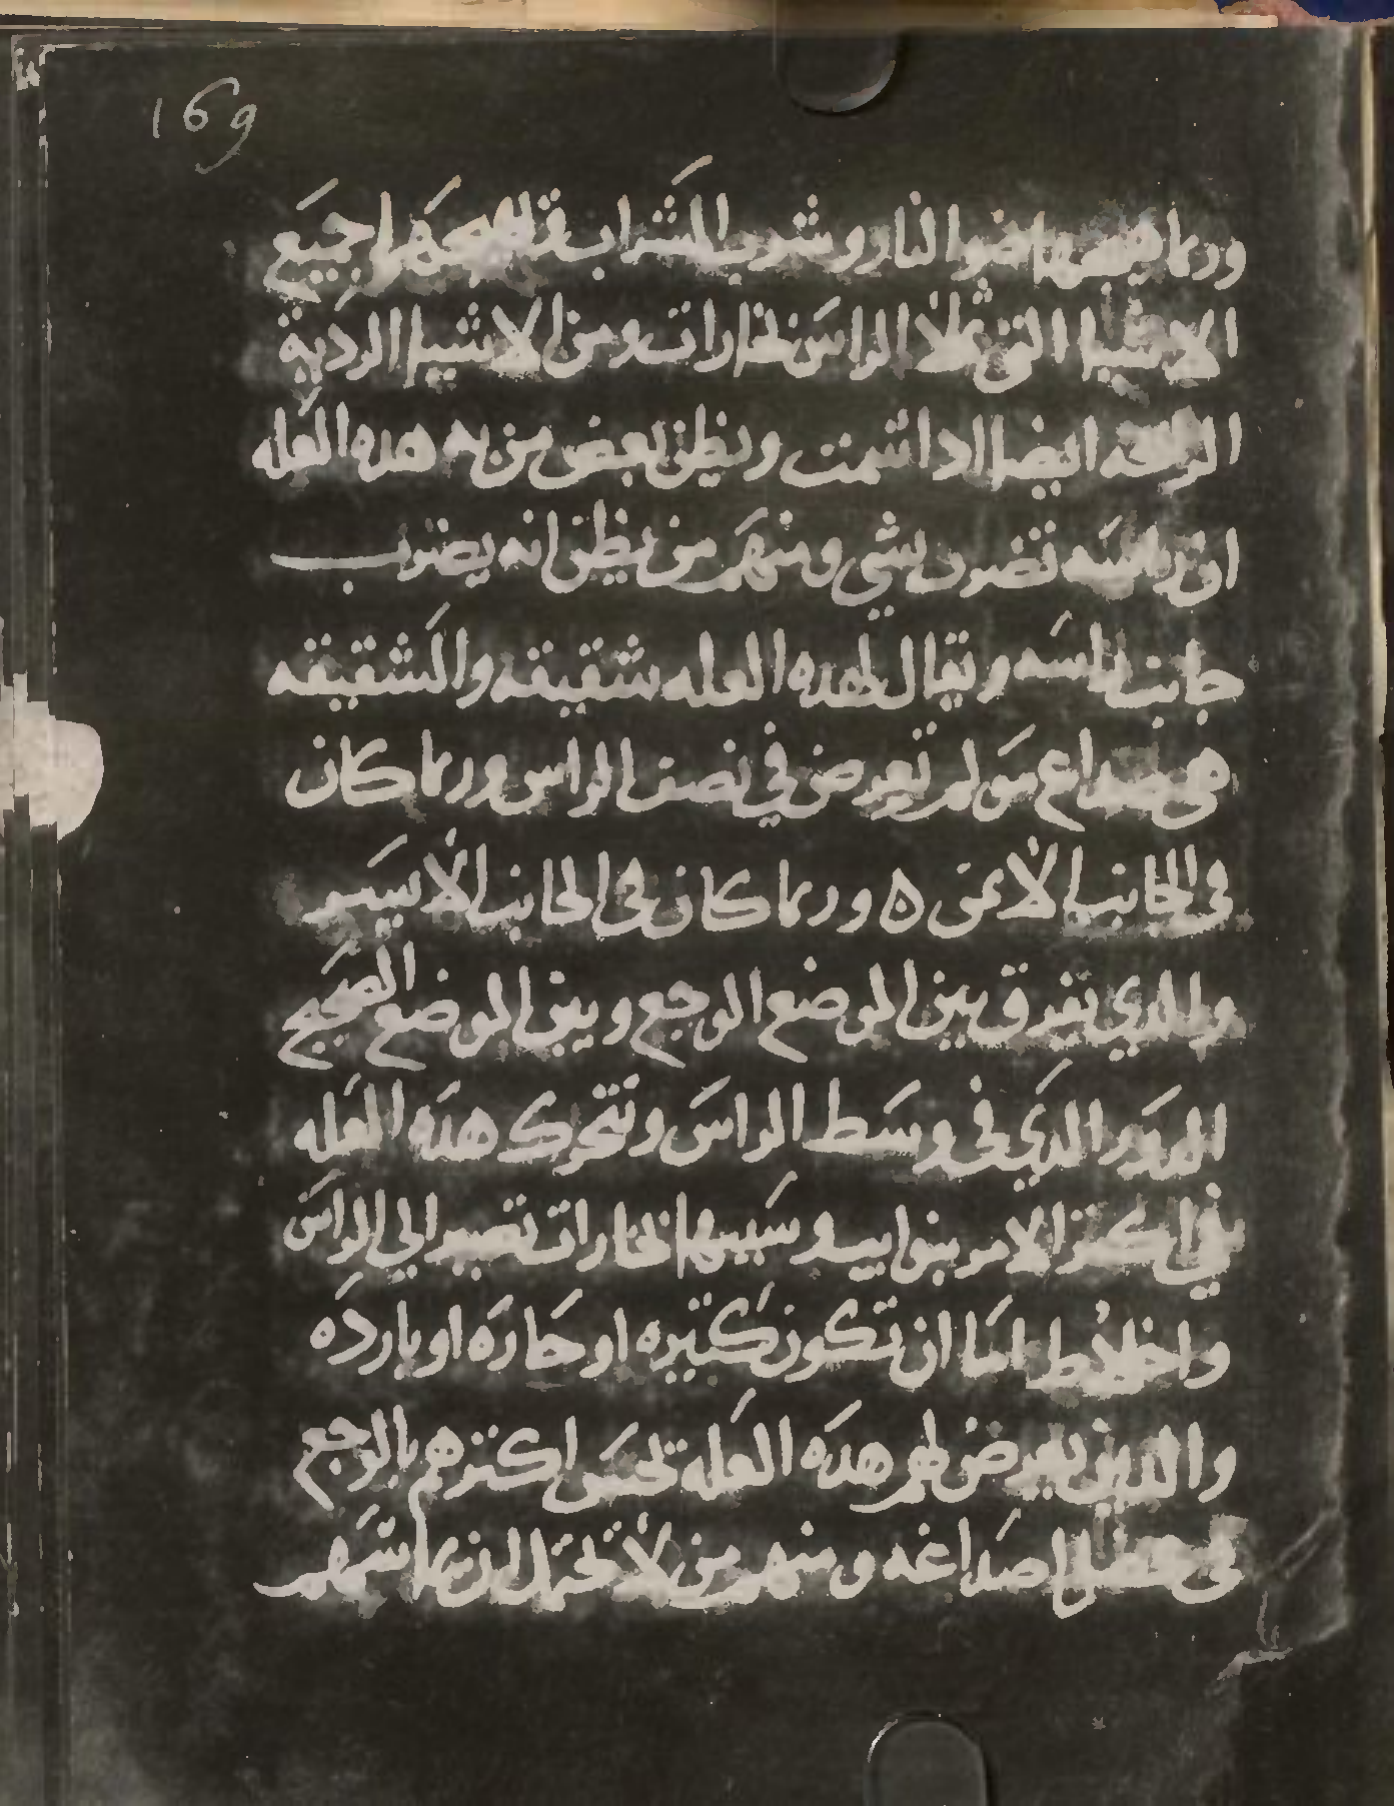 169
وربما هيجها ضوا النار وشرب الشراب وجميع
الاشيا التى تملا الراس بخارات ومن الاشيا الرديه
الرايحه ايضا ادا اشتمت ويظن بعض من به هده العله
ان راسه تضرب بشي ومنهم من يظن انه يضرب
جانب راسه ويقال لهده العله شقيقه والشقيقه
هى صداع مولم تعرض في نصف الراس وربما كان
فى الجانب الايمن ه وربما كان فى الجانب الايسر
والدي يفرق بين الموضع الوجع وبين الموضع الصحيح
الدرز الدي فى وسط الراس وتتحرك هده العله
في اكتر الامر بنوايب وسببها بخارات تصير الي الراس
واخلاط اما ان تكون كتيره او حاره او بارده
والدين يعرض لهم هده العله تحس اكترهم بالوجع
فى عضل اصداغه ومنهم من لا تحتمل ان يماسهم